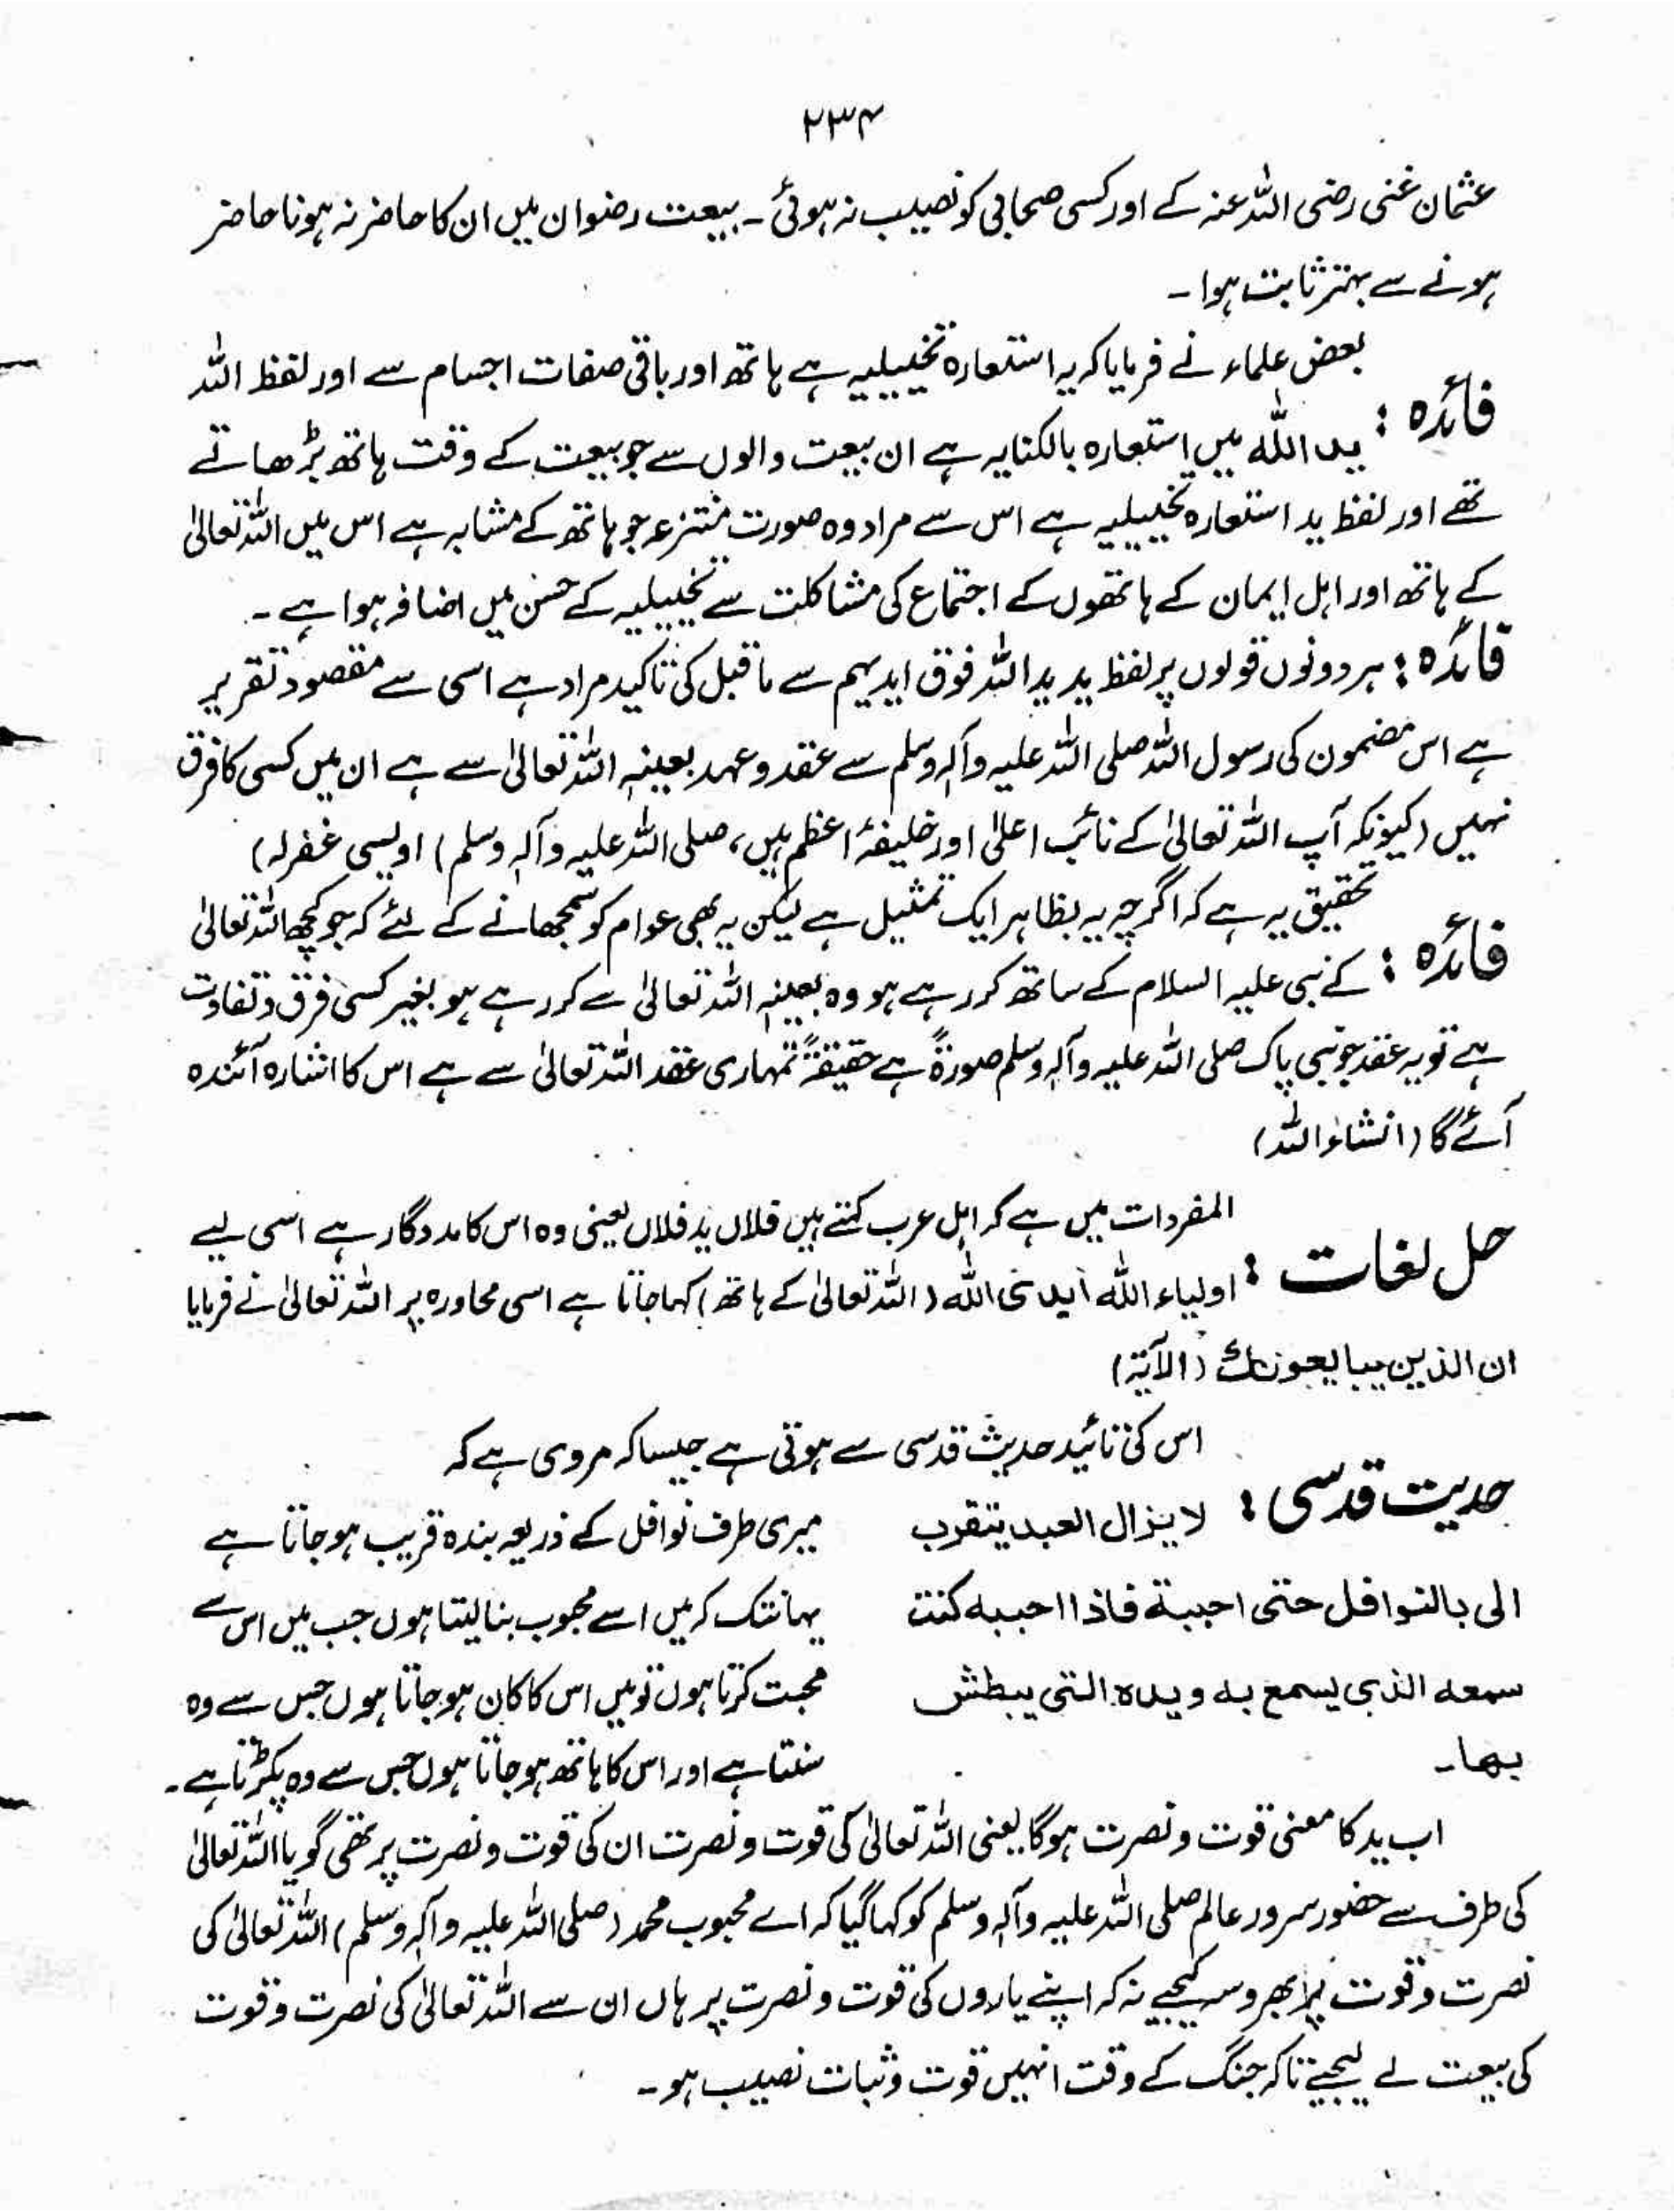 ۲۳۴
عثمان غنی رضی اللہ عنہ کے اور کسی صحابی کو نصیب نہ ہوئی ۔ بیعت رضوان میں ان کا حاضر نہ ہونا حاضر
ہونے سے بہتر ثابت ہوا ۔
بعض علماء نے فرمایا کہ یہ استعارہ تخییلیہ ہے ہاتھ اور باقی صفات اجسام سے اور لفظ اللہ
فائدہ : ید اللہ میں استعارہ بالکنایہ ہے ان بیعت والوں سے جو بیعت کے وقت ہاتھ بڑھاتے
تھے اور لفظ ید استعارہ تخییلیہ ہے اس سے مراد وہ صورت منتزعہ جو ہاتھ کے مشابہ ہے اس میں اللہ تعالیٰ
کے ہاتھ اور اہل ایمان کے ہاتھوں کے اجتماع کی مشاکلت سے تخییلیہ کے حسن میں اضافہ ہوا ہے ۔
فائدہ : ہر دونوں قولوں پر لفظ ید ید اللہ فوق ایدیہم سے ماقبل کی تاکید مراد ہے اسی سے مقصود تقریر
ہے اس مضمون کی رسول اللہ صلی اللہ علیہ وآلہ وسلم سے عقد و عہد بعینہٖ اللہ تعالیٰ سے ہے ان میں کسی کا فرق
نہیں (کیونکہ آپ اللہ تعالیٰ کے نائب اعلیٰ اور خلیفۂ اعظم ہیں، صلی اللہ علیہ وآلہ وسلم) اویسی غفرلہ)
تحقیق یہ ہے کہ اگرچہ یہ بظاہر ایک تمثیل ہے لیکن یہ بھی عوام کو سمجھانے کے لئے کہ جو کچھ اللہ تعالیٰ
فائدہ : کے نبی علیہ السلام کے ساتھ کر رہے ہو وہ بعینہٖ اللہ تعالیٰ سے کر رہے ہو بغیر کسی فرق و تفاوت
ہے تو یہ عقد جو نبی پاک صلی اللہ علیہ وآلہ وسلم صورۃً ہے حقیقۃً تمہاری عقد اللہ تعالیٰ سے ہے اس کا اشارہ آئندہ
آئے گا (انشاء اللہ)
المفردات میں ہے کہ اہل عرب کہتے ہیں فلاں ید فلاں یعنی وہ اس کا مددگار ہے اسی لیے
حل لغات : اولیاء اللہ ایدی اللہ (اللہ تعالیٰ کے ہاتھ) کہا جاتا ہے اسی محاورہ پر اللہ تعالیٰ نے فرمایا
ان الذین یبایعونک (الآیۃ)
اس کی تائید حدیث قدسی سے ہوتی ہے جیسا کہ مروی ہے کہ
حدیث قدسی : لا یزال العبد یتقرب میری طرف نوافل کے ذریعہ بندہ قریب ہو جاتا ہے
الی بالنوافل حتی احببۃ فاذا احببہ کنت یہانتک کہ میں اسے محبوب بنا لیتا ہوں جب میں اس سے
سمعہ الذی یسمع بہ ویدہ التی یبطش محبت کرتا ہوں تو میں اس کا کان ہو جاتا ہوں جس سے وہ
بھا۔ سنتا ہے اور اس کا ہاتھ ہو جاتا ہوں جس سے وہ پکڑتا ہے ۔
اب ید کا معنی قوت و نصرت ہوگا یعنی اللہ تعالیٰ کی قوت و نصرت ان کی قوت و نصرت پر تھی گویا اللہ تعالیٰ
کی طرف سے حضور سرور عالم صلی اللہ علیہ وآلہ وسلم کو کہا گیا کہ اے محبوب محمد (صلی اللہ علیہ وآلہ وسلم) اللہ تعالیٰ کی
نصرت و قوت پر بھروسہ کیجیے نہ کہ اپنے یاروں کی قوت و نصرت پر ہاں ان سے اللہ تعالیٰ کی نصرت و قوت
کی بیعت لے لیجیے تاکہ جنگ کے وقت انہیں قوت و ثبات نصیب ہو ۔